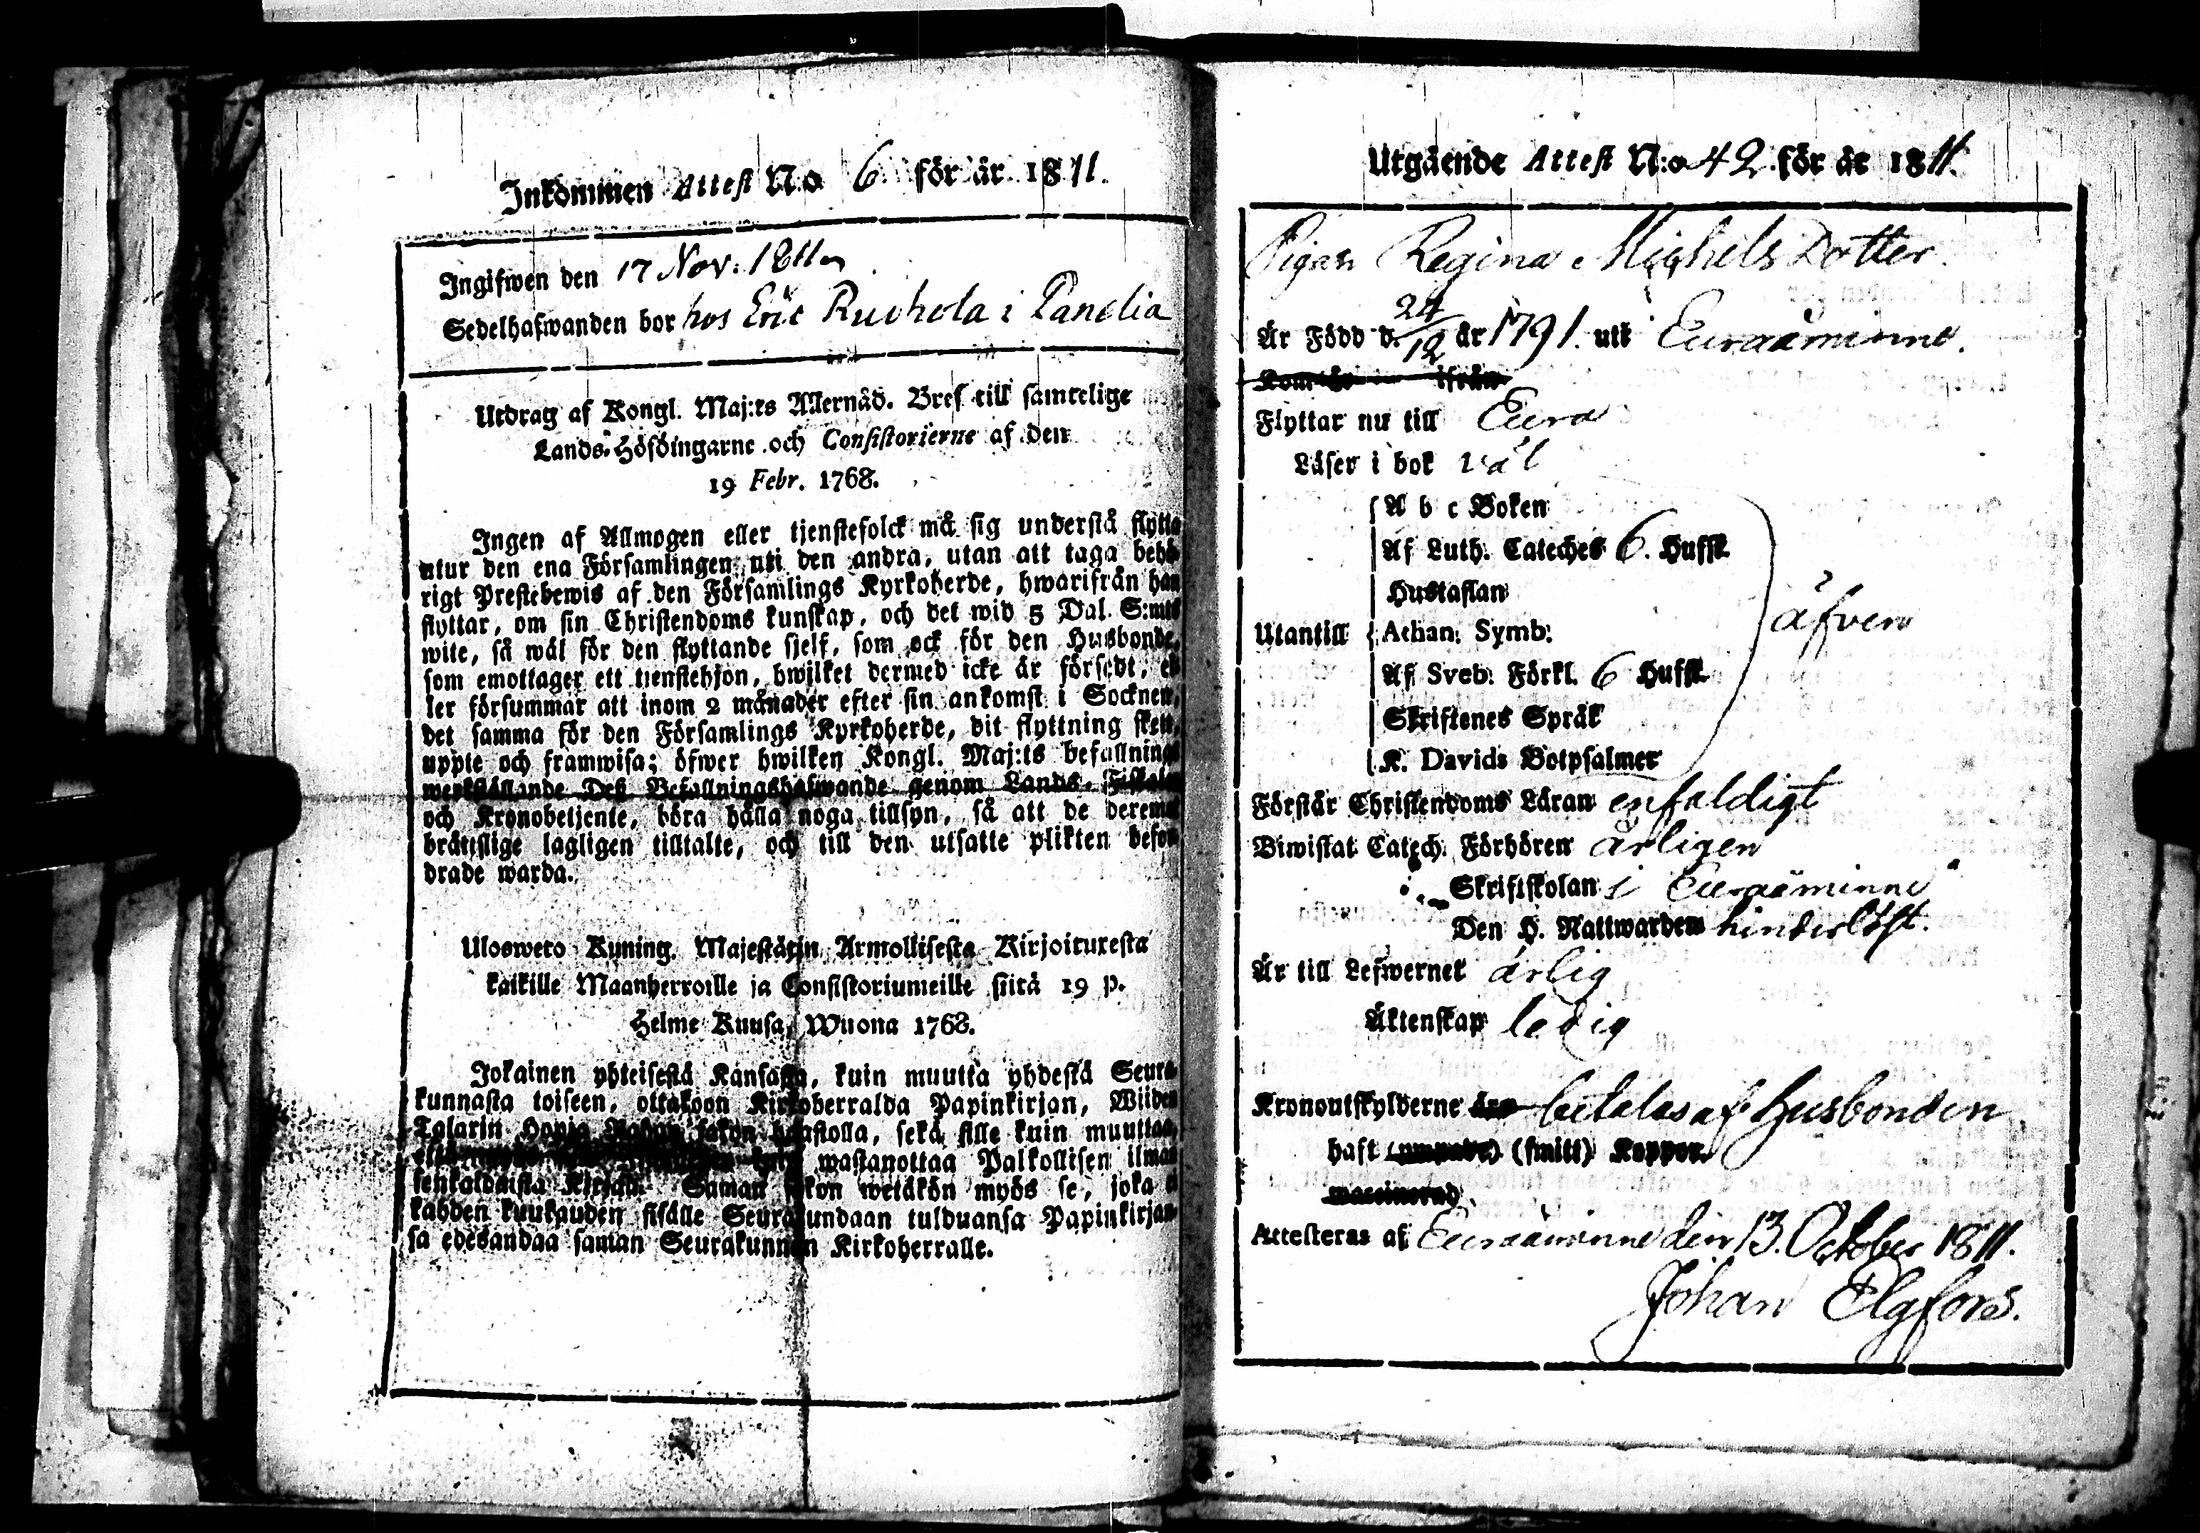 Inkommen Attest N:o 6. för år 1811.
Ingifwen den 17 Nov: 1811
Sedelhafwanden bor hos Eric Ruohola i Panelia
Utdrag af Kongl. Maj:ts Allernåd. Bref till samtelige
Lands-Höfdingarne och Consistorierne af den
19 Febr. 1768.
Ingen af Allmogen eller tjenstefolck må sig understå flytta
utur den ena Församlingen uti den andra, utan att taga behö-
rigt Prestebewis af den Församlings Kyrkoherde, hwarifrån han
flyttar, om sin Christendoms kunskap, och det wid 5 Dal. S:mts
wite, så wäl för den flyttande sjelf, som ock för den Husbonde,
som emottager ett tienstehjon, hwilket dermed icke är försedt, el-
ler försummar att inom 2 månader efter sin ankomst i Socknen,
det samma för den Församlings Kyrkoherde, dit flyttning skett,
uppte och framwisa; öfwer hwilken Kongl. Maj:ts befallnings
werkställande Deß Befallningshafwande genom Lands-Fiskaler
och Kronobetjente, böra hålla noga tillsyn, så att de deremot
bråttslige lagligen tilltalte, och till den utsatte plikten befor-
drade warda.
Ulosweto Kuning. Majestätin Armollisesta Kirjoituresta
kaikille Maanherroille ja Consistoriumeille siitä 19 p.
Helme Kuusa, Wuona 1768.
Jokainen yhteisestä Kansasta, kuin muutta yhdestä Seura-
kunnasta toiseen, ottakoon Kirkoherralda Papinkirjan, Wiiden
Talarin Hopia Rahan sakon haastolla, sekä sille kuin muuttaa,
wastanottaa Palkollisen ilman
senkaldaista Kirjaa. Saman sakon wetäkön myös se, joka ei
kahden kuukauden sisälle Seurakundaan tulduansa Papinkirjan-
sa edesandaa saman Seurakunnan Kirkoherralle.
Utgående Attest N:o 42 för år 1811.
Pigan Regina Michels Dotter.
Är Född d. 24/12 år 1791. uti Euraåminne.
Kom år ifrån
Flyttar nu till Eura
Läser i bok väl
A b c Boken
Af Luth. Cateches 6. Hufst.
Hustaflan
Utantill Athan. Symb:
Af Sveb: Förkl. 6 Hufst.
Skriftenes Språk
K. Davids Botpsalmer
äfven
Förstår Christendoms Läran enfaldigt
Biwistat Catech. Förhören årligen
Skriftskolan i Euraåminne
Den H. Nattwarden hinderlöst.
Är till Lefwernet ärlig
Äktenskap ledig
Kronoutskylderne äro betalas af Husbonden
haft (ympade) (smitt) Koppor.
waccinerad.
Attesteras af Euraåminne den 13. October 1811.
Johan Elgfors.